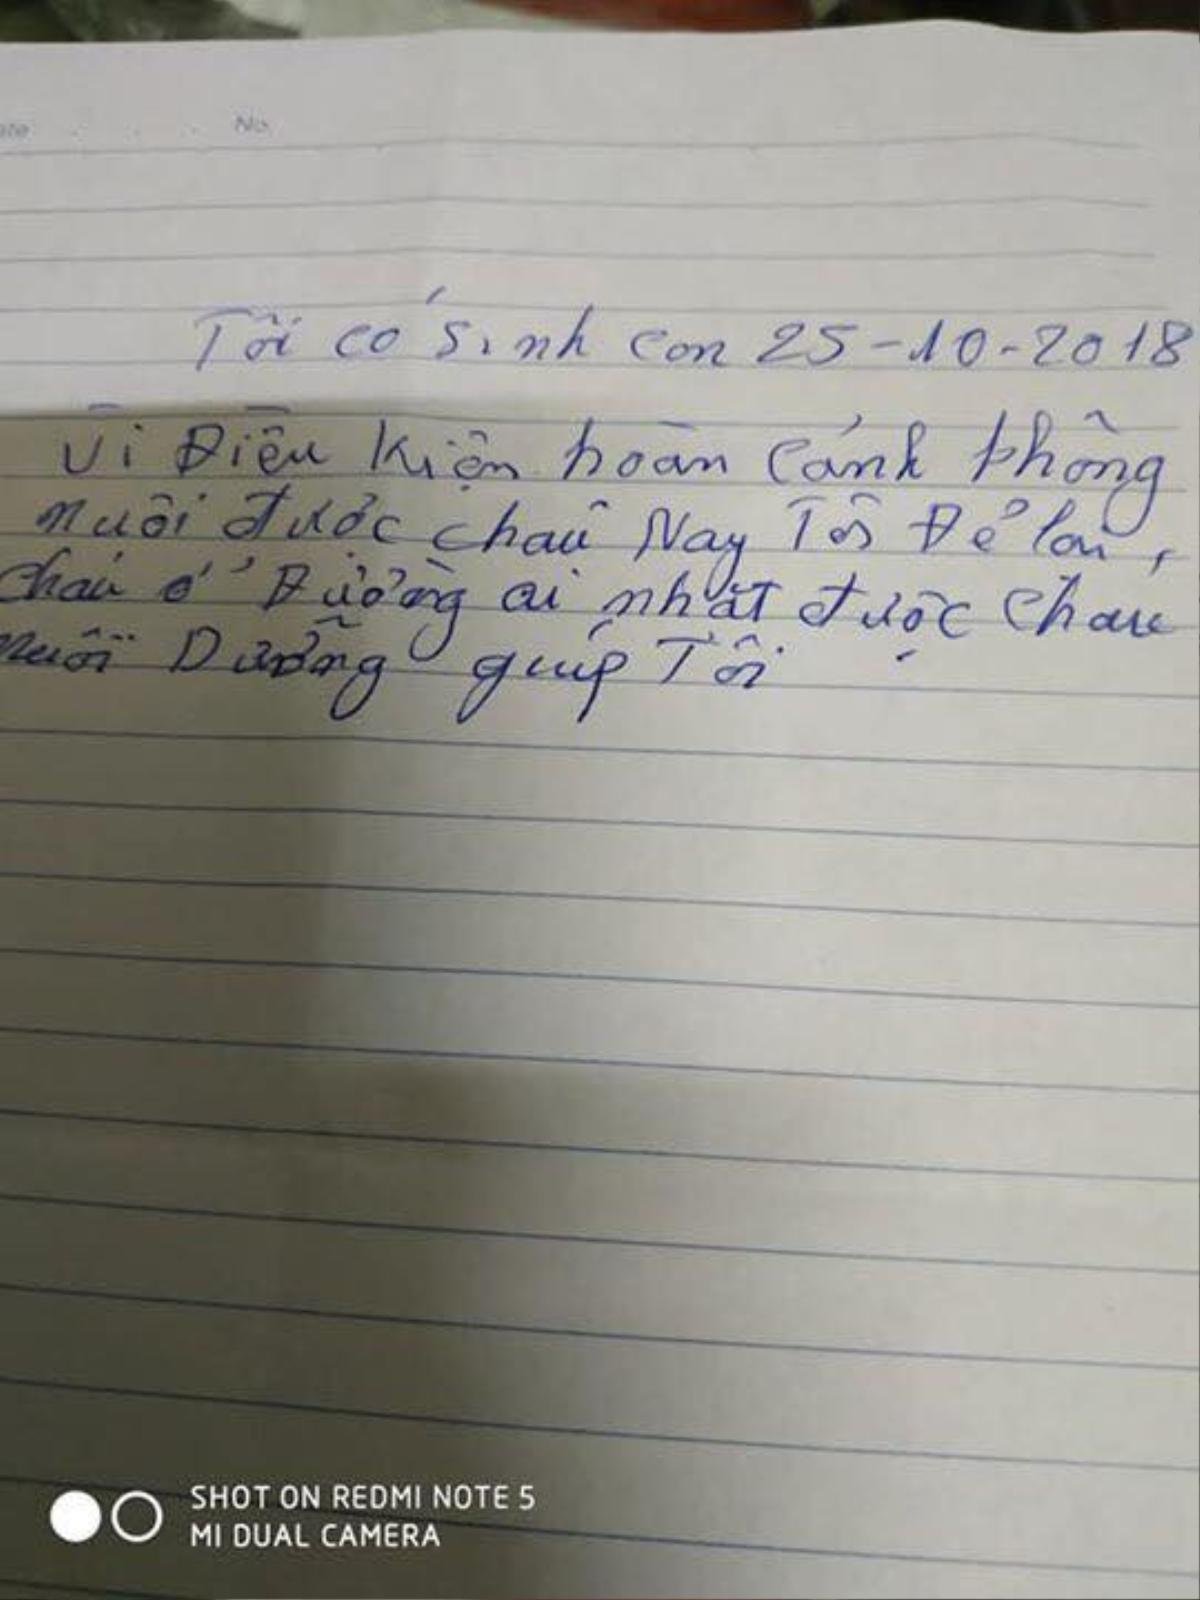 No.
Tôi có sinh con 25-10-2018
Vì Điều Kiện hoàn cảnh không
nuôi được cháu Nay Tôi Để lại
cháu ở Đường ai nhặt được cháu
nuôi Dưỡng giúp Tôi
SHOT ON REDMI NOTE 5
MI DUAL CAMERA